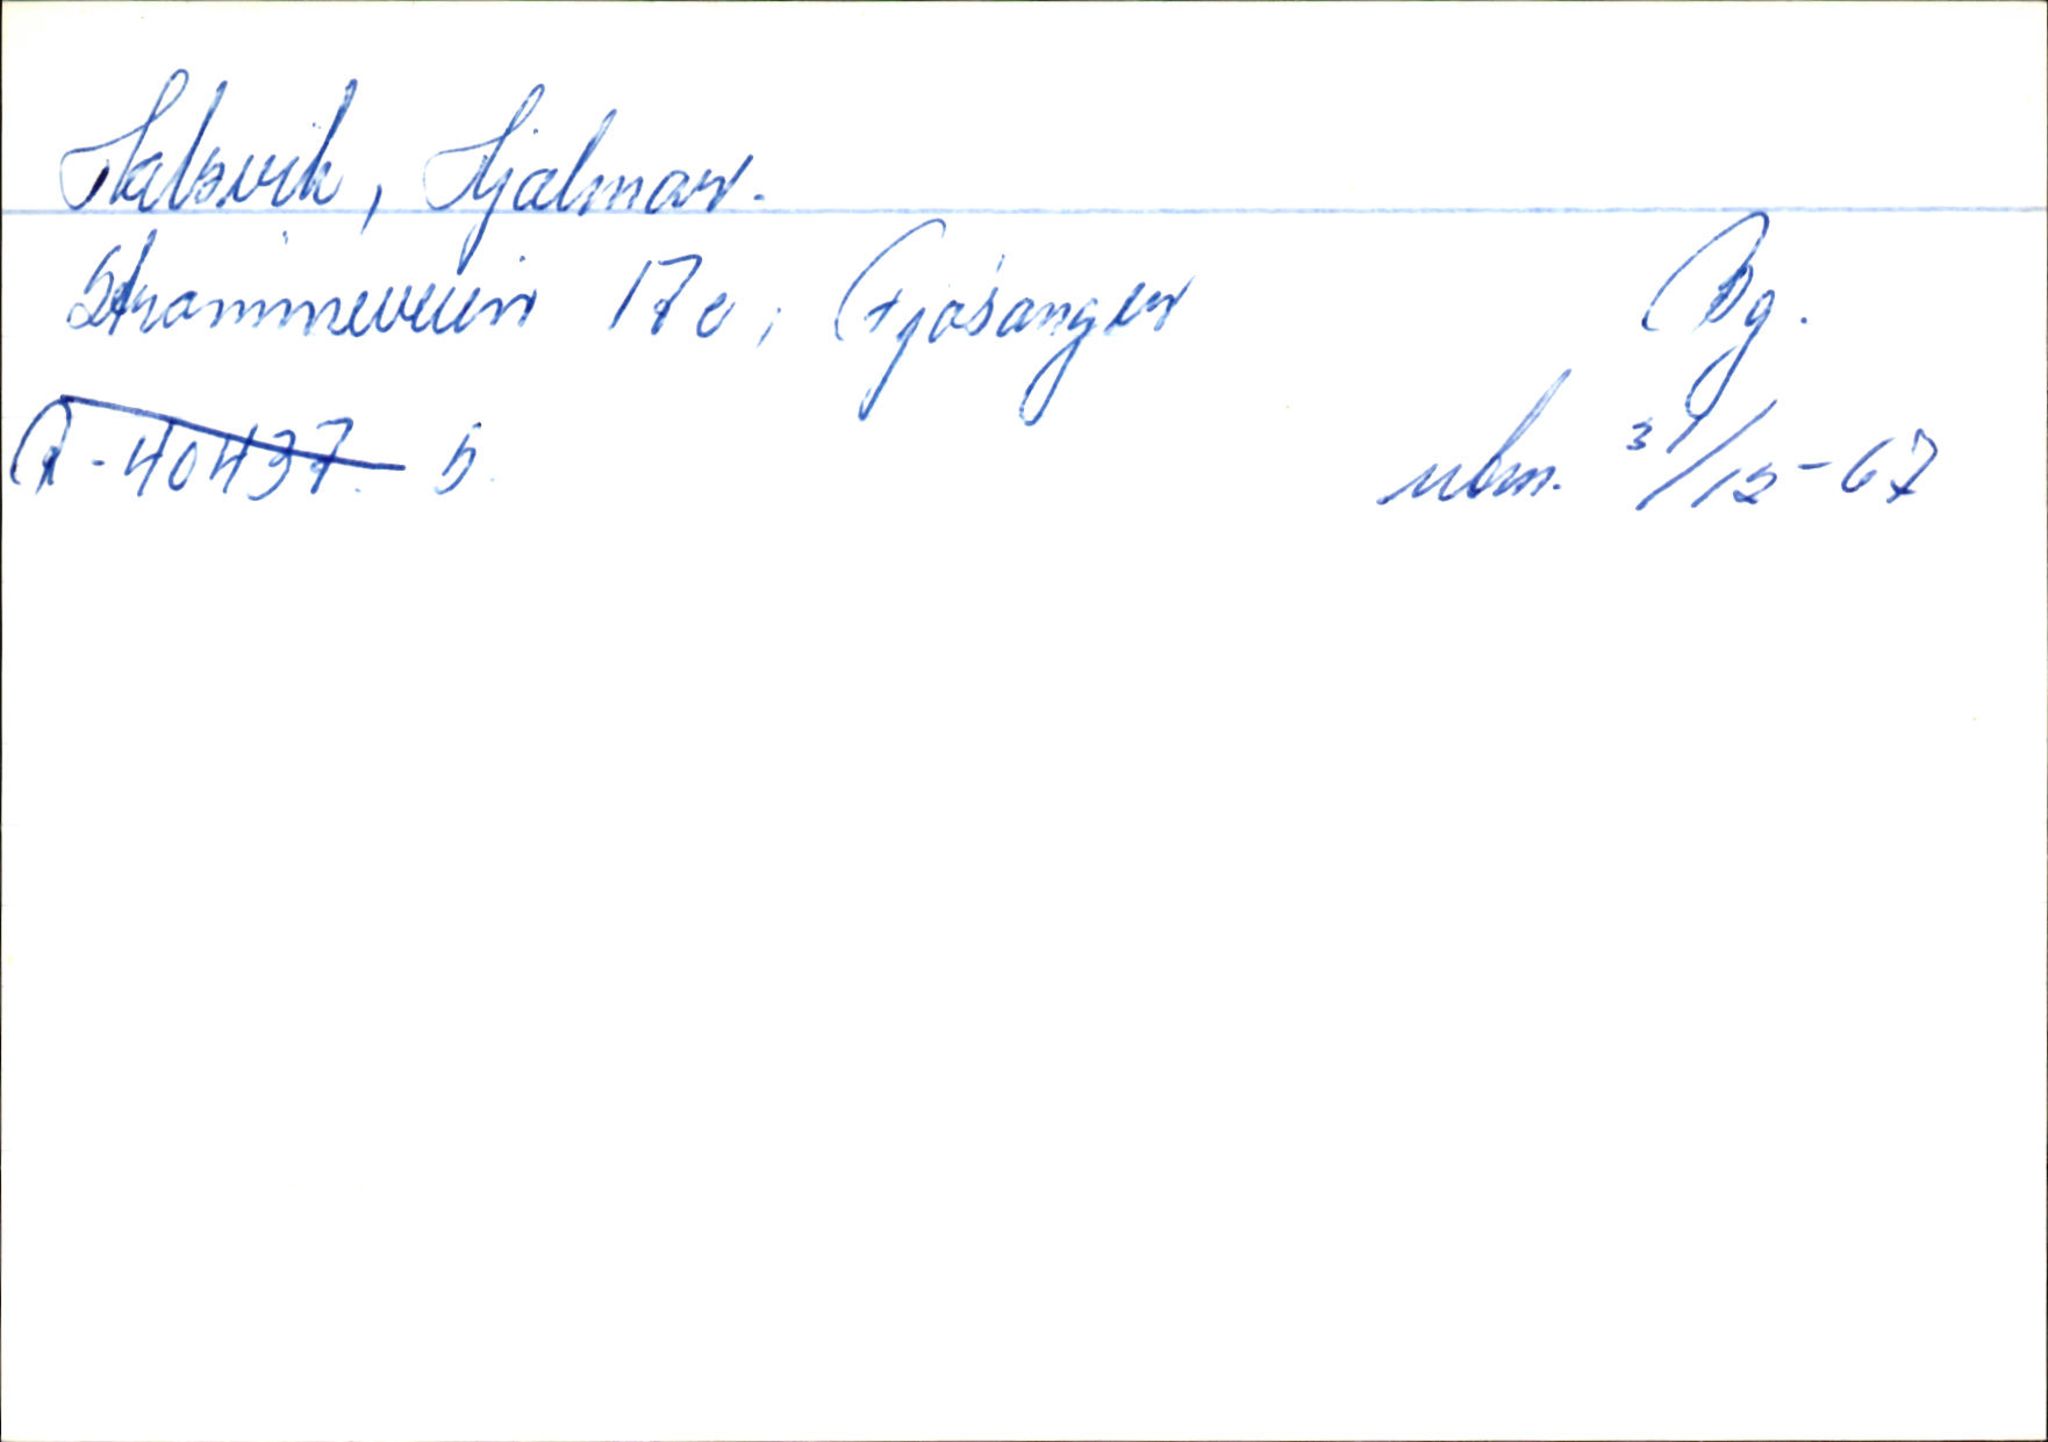 Halsvik, Hjalmar.
Strømmeveien 17c, Fjøsanger Bg.
R-40437. 5. ubm. 31/12-67